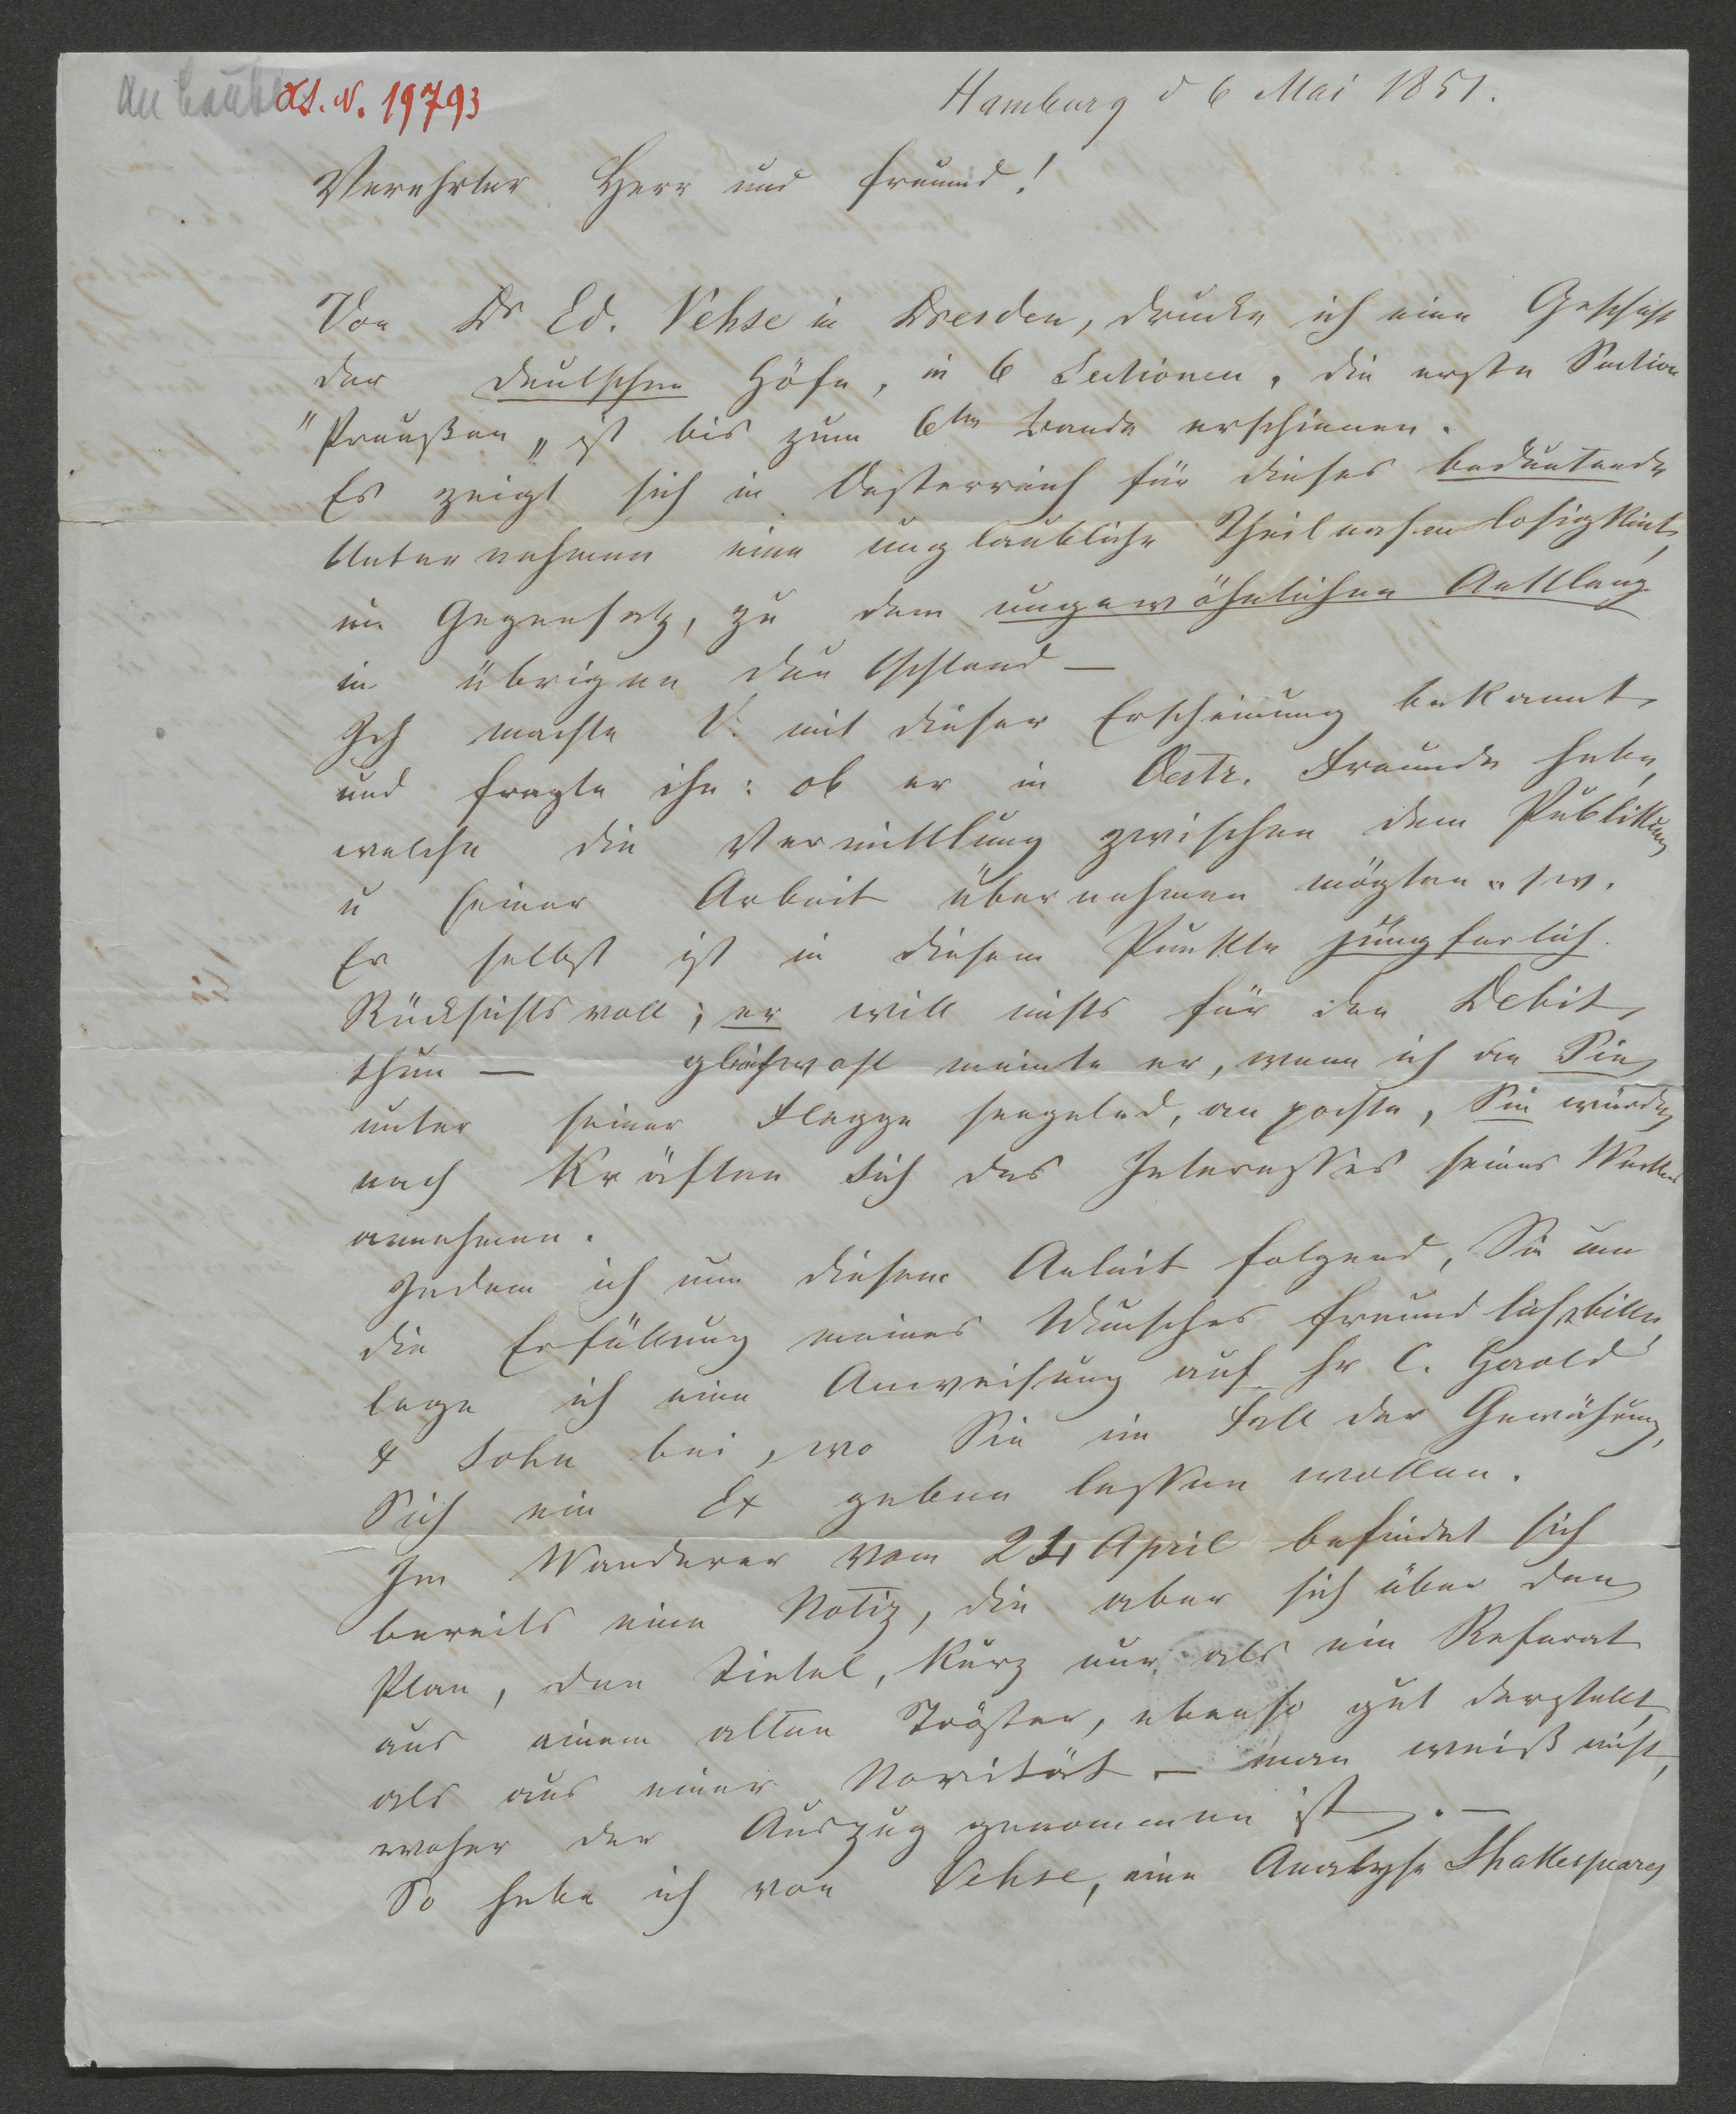 An Laube
H.I.N. 19793
Hamburg d 6 Mai 1851.
Verehrter Herr und Freund!
Von Dr Ed. Vehse in Dresden, drucke ich eine Geschicht
der deutschen Höfe, in 6 Sectionen, die erste Section
"Preußen„ ist bis zum 6ten Bande erschienen.
Es zeigt sich in Oesterreich für dieses bedeutende
Unternehmen eine unglaubliche Theilnahmlosigkeit,
im Gegensatz, zu dem ungewöhnlichen Anklang
in übrigen Deutschland —
Ich machte V. mit dieser Erscheinung bekannt,
und fragte ihn: ob er in Oestr. Freunde habe,
welche die Vermittlung zwischen dem Publikum
u seiner Arbeit übernehmen mögten usw.
Er selbst ist in diesem Punkte jüngferlich
Rücksichtsvoll; er will nichts für den Debit
thun — gleichwohl meinte er, wenn ich an Sie,
unter seiner Flagge seegelnd, an pochte, Sie würden
nach Kräften sich des Interesses seines Werkes
annehmen.
Indem ich nun diesem Anleit folgend, Sie um
die Erfüllung meines Wunsches freundlichst bitte,
lege ich eine Anweisung auf Hr C. Gerold
& Sohn bei, wo Sie im Fall der Gewährung,
Sich ein Ex geben lassen wollen.
Im Wanderer vom 24 April befindet sich
bereits eine Notiz, die aber sich über den
Plan, den Tietel, kurz nur als ein Referat
aus einem alten Tröster, ebenso gut darstellt,
als aus einer Novität — man weiß nicht,
woher der Auszug genommen ist. —
So habe ich von Vehse, eine Analyse Shakespeares